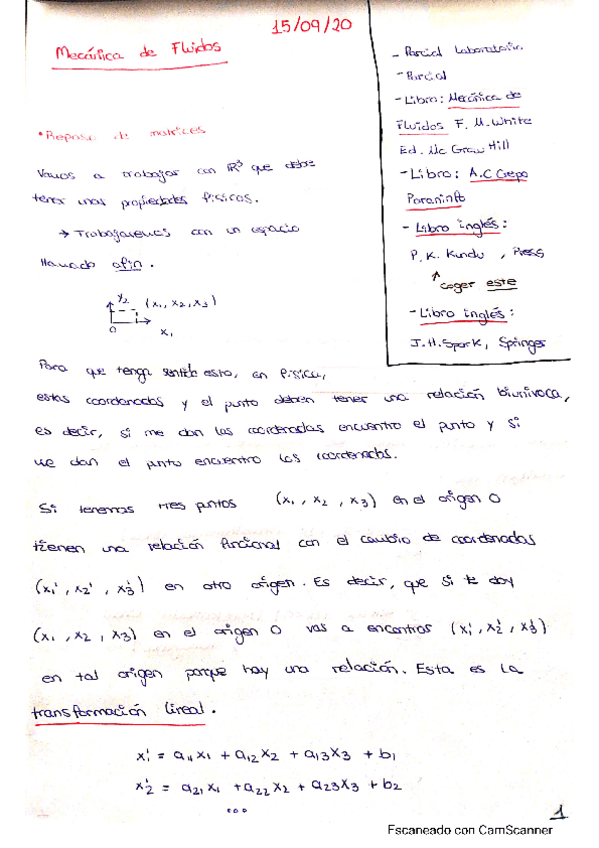 15/09/20
Mecánica de Fluidos
- Parcial Laboratorio
- Parcial
- Libro: Mecánica de
Fluidos F. M. White
Ed. Mc Graw Hill
- Libro: A.C Crespo
Paraninfo
- Libro inglés:
P. K. Kundu , Press
↑ coger este
- Libro inglés:
J.H. Spurk, Springer
• Repaso de matrices
Vamos a trabajar con ℝ³ que debe
tener unas propiedades físicas.
→ Trabajaremos con un espacio
llamado afín.
x₂ (x₁, x₂, x₃)
0 x₁
Para que tenga sentido esto, en física,
estas coordenadas y el punto deben tener una relación biunívoca,
es decir, si me dan las coordenadas encuentro el punto y si
me dan el punto encuentro las coordenadas.
Si tenemos tres puntos (x₁, x₂, x₃) en el origen O
tienen una relación funcional con el cambio de coordenadas
(x₁', x₂', x₃') en otro origen. Es decir, que si te doy
(x₁, x₂, x₃) en el origen O vas a encontrar (x₁', x₂', x₃')
en tal origen porque hay una relación. Esta es la
transformación lineal.
x₁' = a₁₁x₁ + a₁₂x₂ + a₁₃x₃ + b₁
x₂' = a₂₁x₁ + a₂₂x₂ + a₂₃x₃ + b₂
...
1
Escaneado con CamScanner